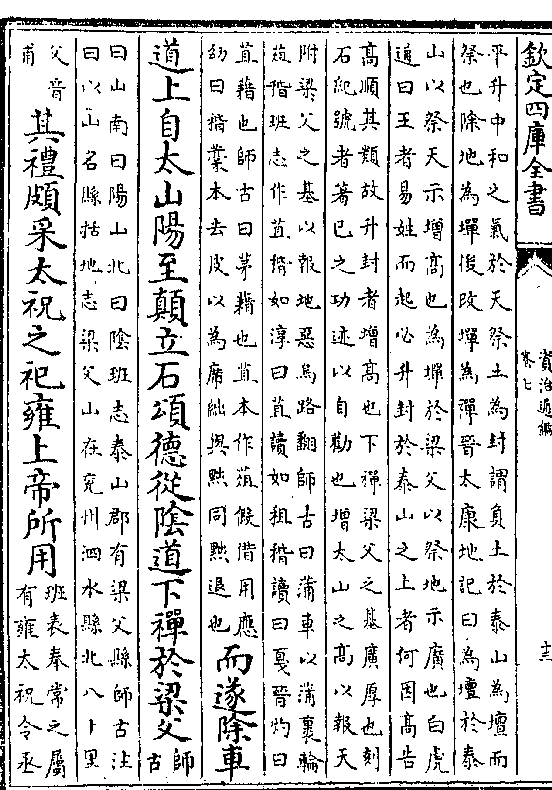 欽定四庫全書
資治通鑑
卷七
十三
平升中和之氣於天祭土為封謂負土於泰山為壇而
祭也除地為墠後改墠為禪晉太康地記曰為壇於泰
山以祭天示增高也為墠於梁父以祭地示廣也白虎
通曰王者易姓而起必升封於泰山之上者何因高告
高順其類故升封者增高也下禪梁父之基廣厚也刻
石紀號者著已之功迹以自勸也增太山之高以報天
附梁父之基以報地惡為路翻師古曰蒲車以蒲裹輪
菹稭班志作苴稭如淳曰苴讀如租稭讀曰戛晉灼曰
苴藉也師古曰茅藉也苴本作菹假借用應
劭曰稭藁本去皮以為席絀與黜同黜退也
而遂除車
道上自太山陽至顛立石頌德從陰道下禪於梁父
師古
曰山南曰陽山北曰陰班志泰山郡有梁父縣師古注
曰以山名縣括地志梁父山在兗州泗水縣北八十里
父音
甫
其禮頗采太祝之祀雍上帝所用
班表奉常之屬
有雍太祝令丞